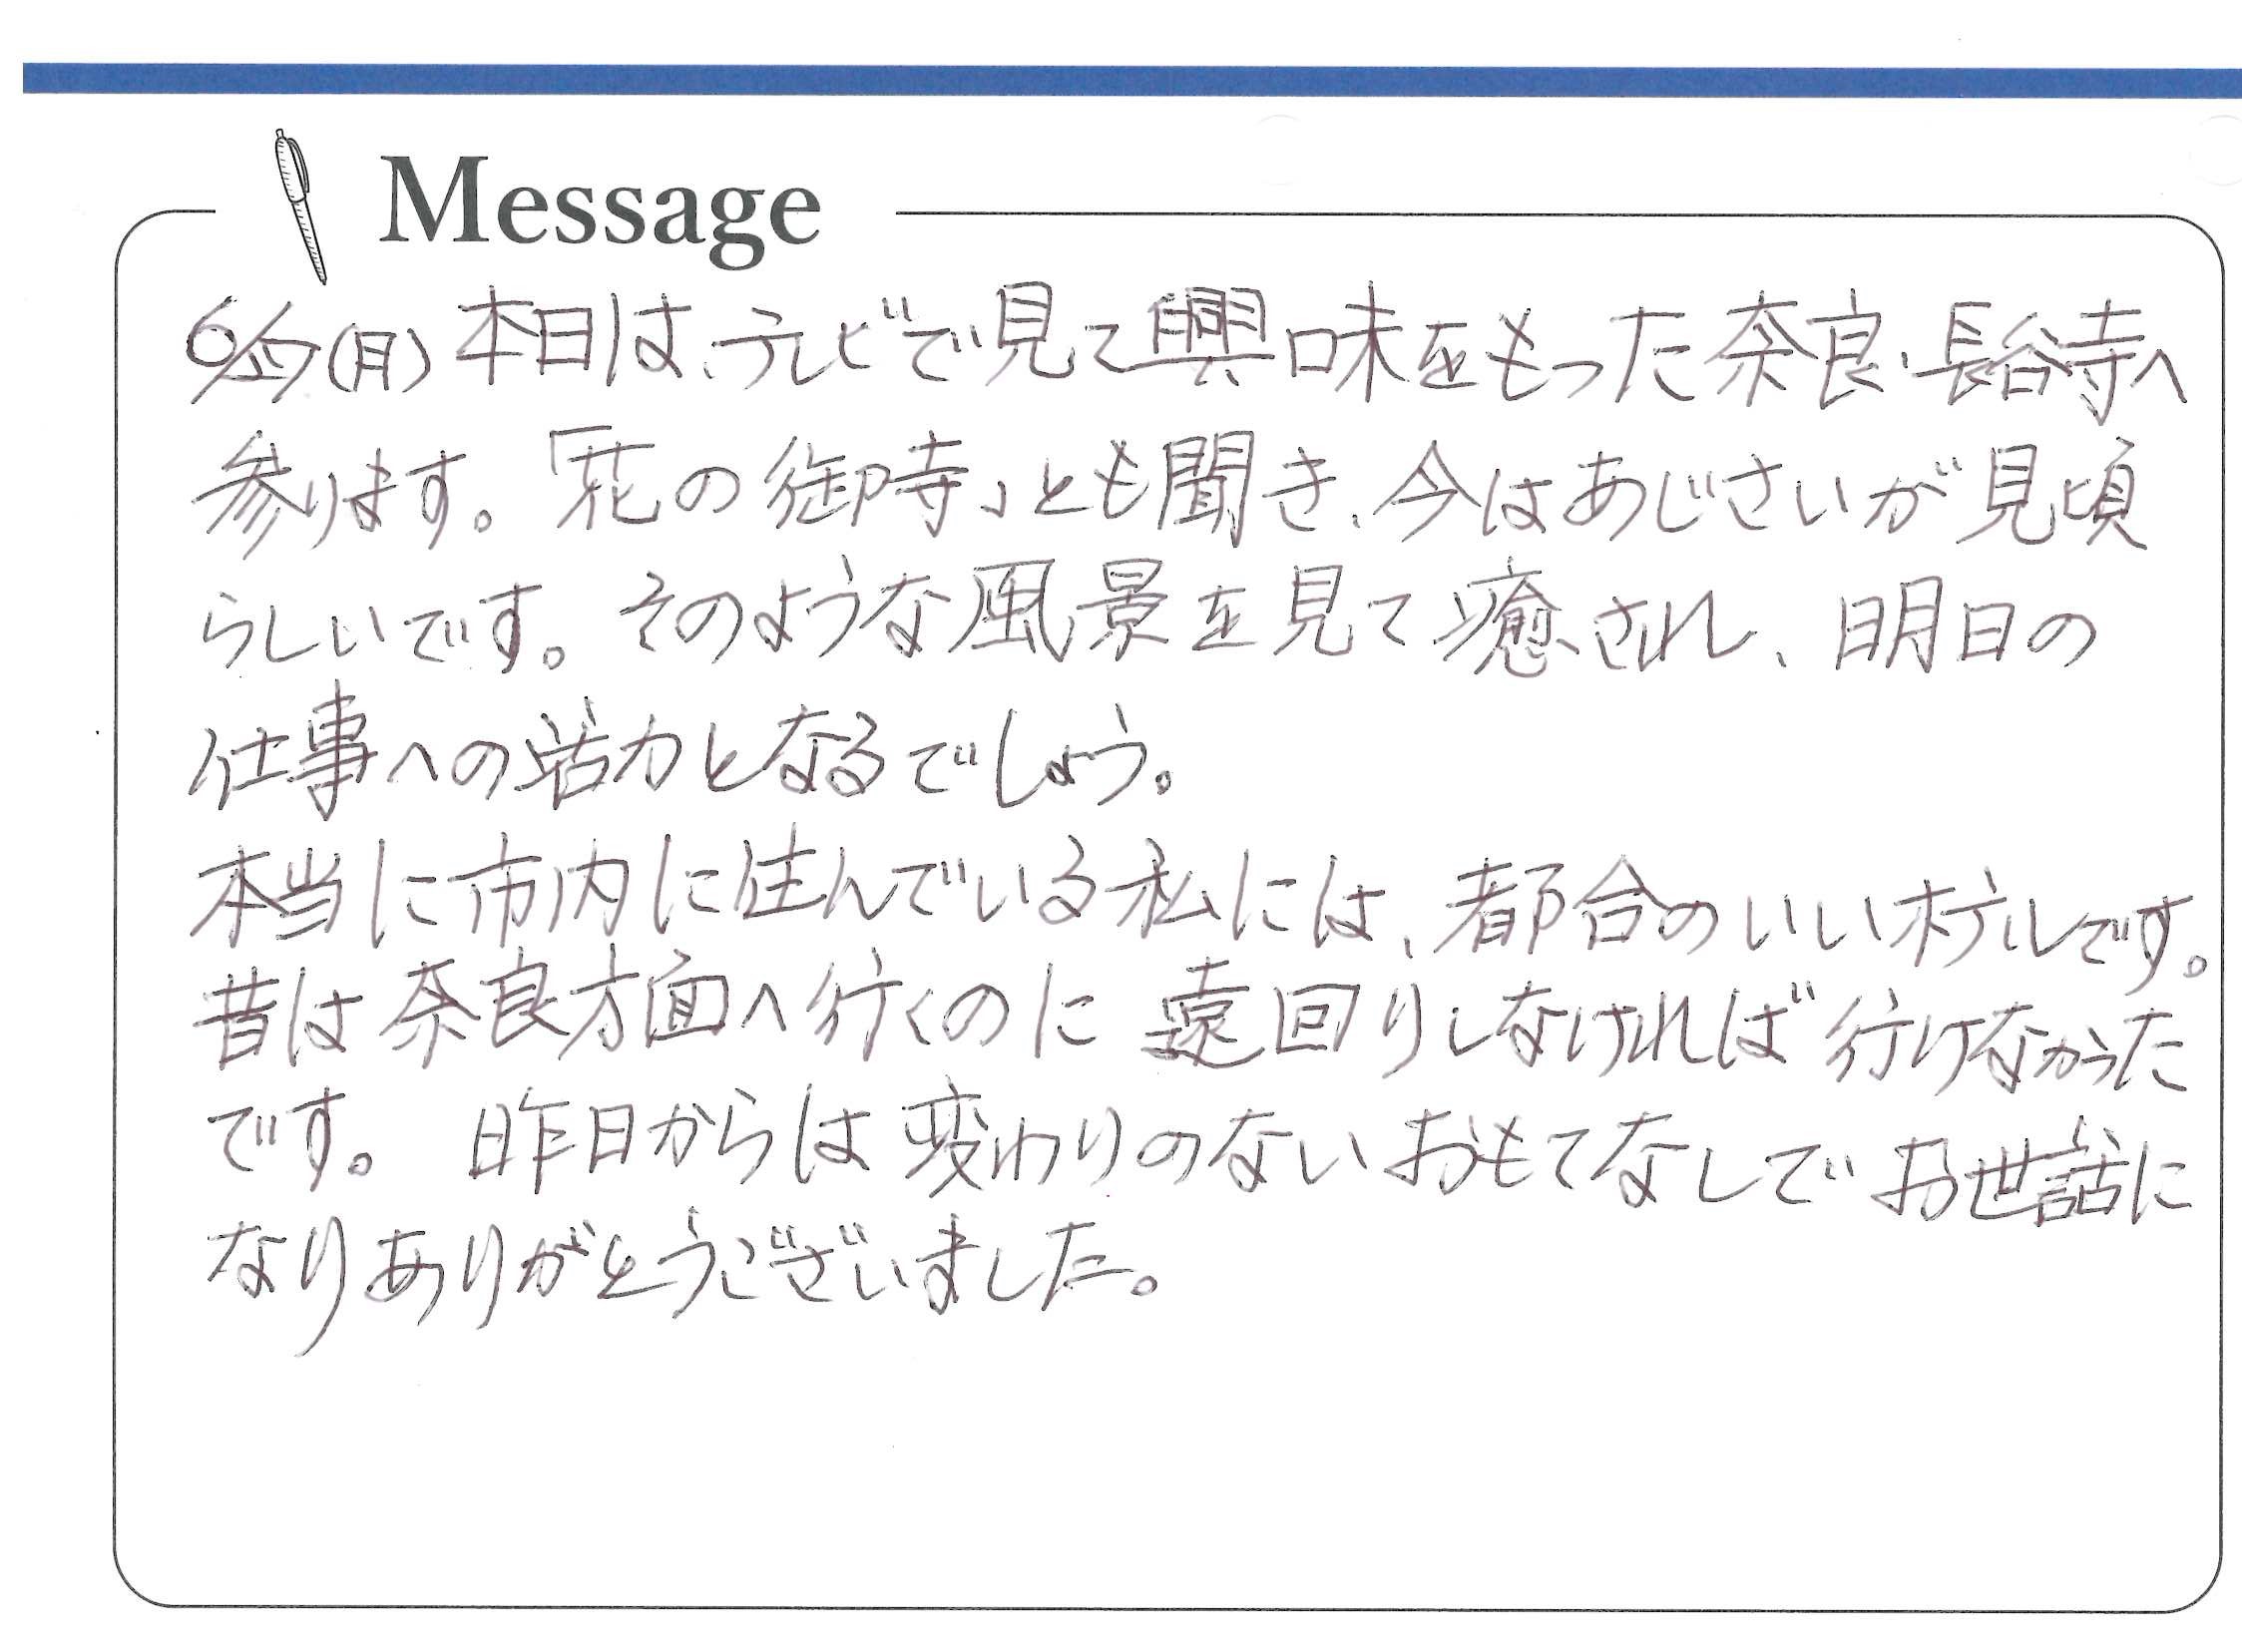 Message
6/17(月) 本日は、テレビで見て興味をもった奈良・長谷寺へ
参ります。「花の御寺」とも聞き、今はあじさいが見頃
らしいです。そのような風景を見て癒され、明日の
仕事への活力となるでしょう。
本当に市内に住んでいる私には、都合のいいホテルです。
昔は奈良方面へ行くのに遠回りしなければ行けなかった
です。 昨日からは変わりのないおもてなしでお世話に
なりありがとうございました。